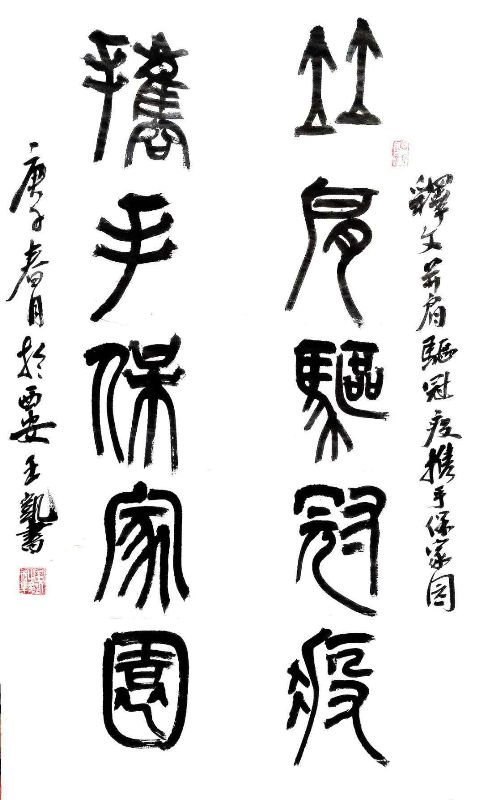 釋文并肩驅冠疫携手保家园
竝肩驅冠疫
攜手保家園
庚子春月於西安王凱書